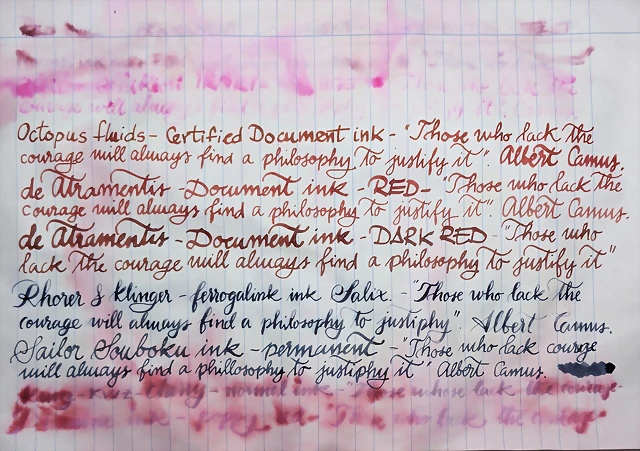 courage will always
Octopus fluids - Certified Document ink - "Those who lack the
courage will always find a philosophy to justify it". Albert Camus.
de Atramentis - Document ink - RED - "Those who lack the
courage will always find a philosophy to justify it". Albert Camus.
de Atramentis - Document ink - DARK RED - "Those who
lack the courage will always find a philosophy to justify it"
Rhorer & Klinger - ferrogalink ink Salix. - "Those who lack the
courage will always find a philosophy to justiphy". Albert Camus.
Sailor Souboku ink - permanent - "Those who lack courage
will always find a philosophy to justiphy it" Albert Camus.
- normal ink - "Those whose lack the courage
ink - "Those who lack the courage